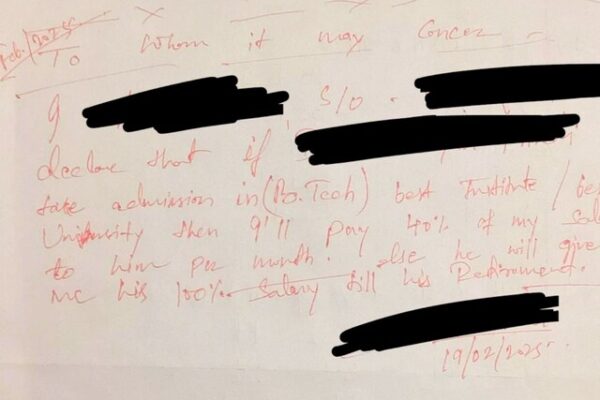 Feb./2025
To Whom it may Concer
I S/O.
declare that if
take admission in (B.Tech) best Institute / bes
University then I'll pay 40% of my sal
to him per month. else he will give
me his 100% Salary till his Retirement.
19/02/2025